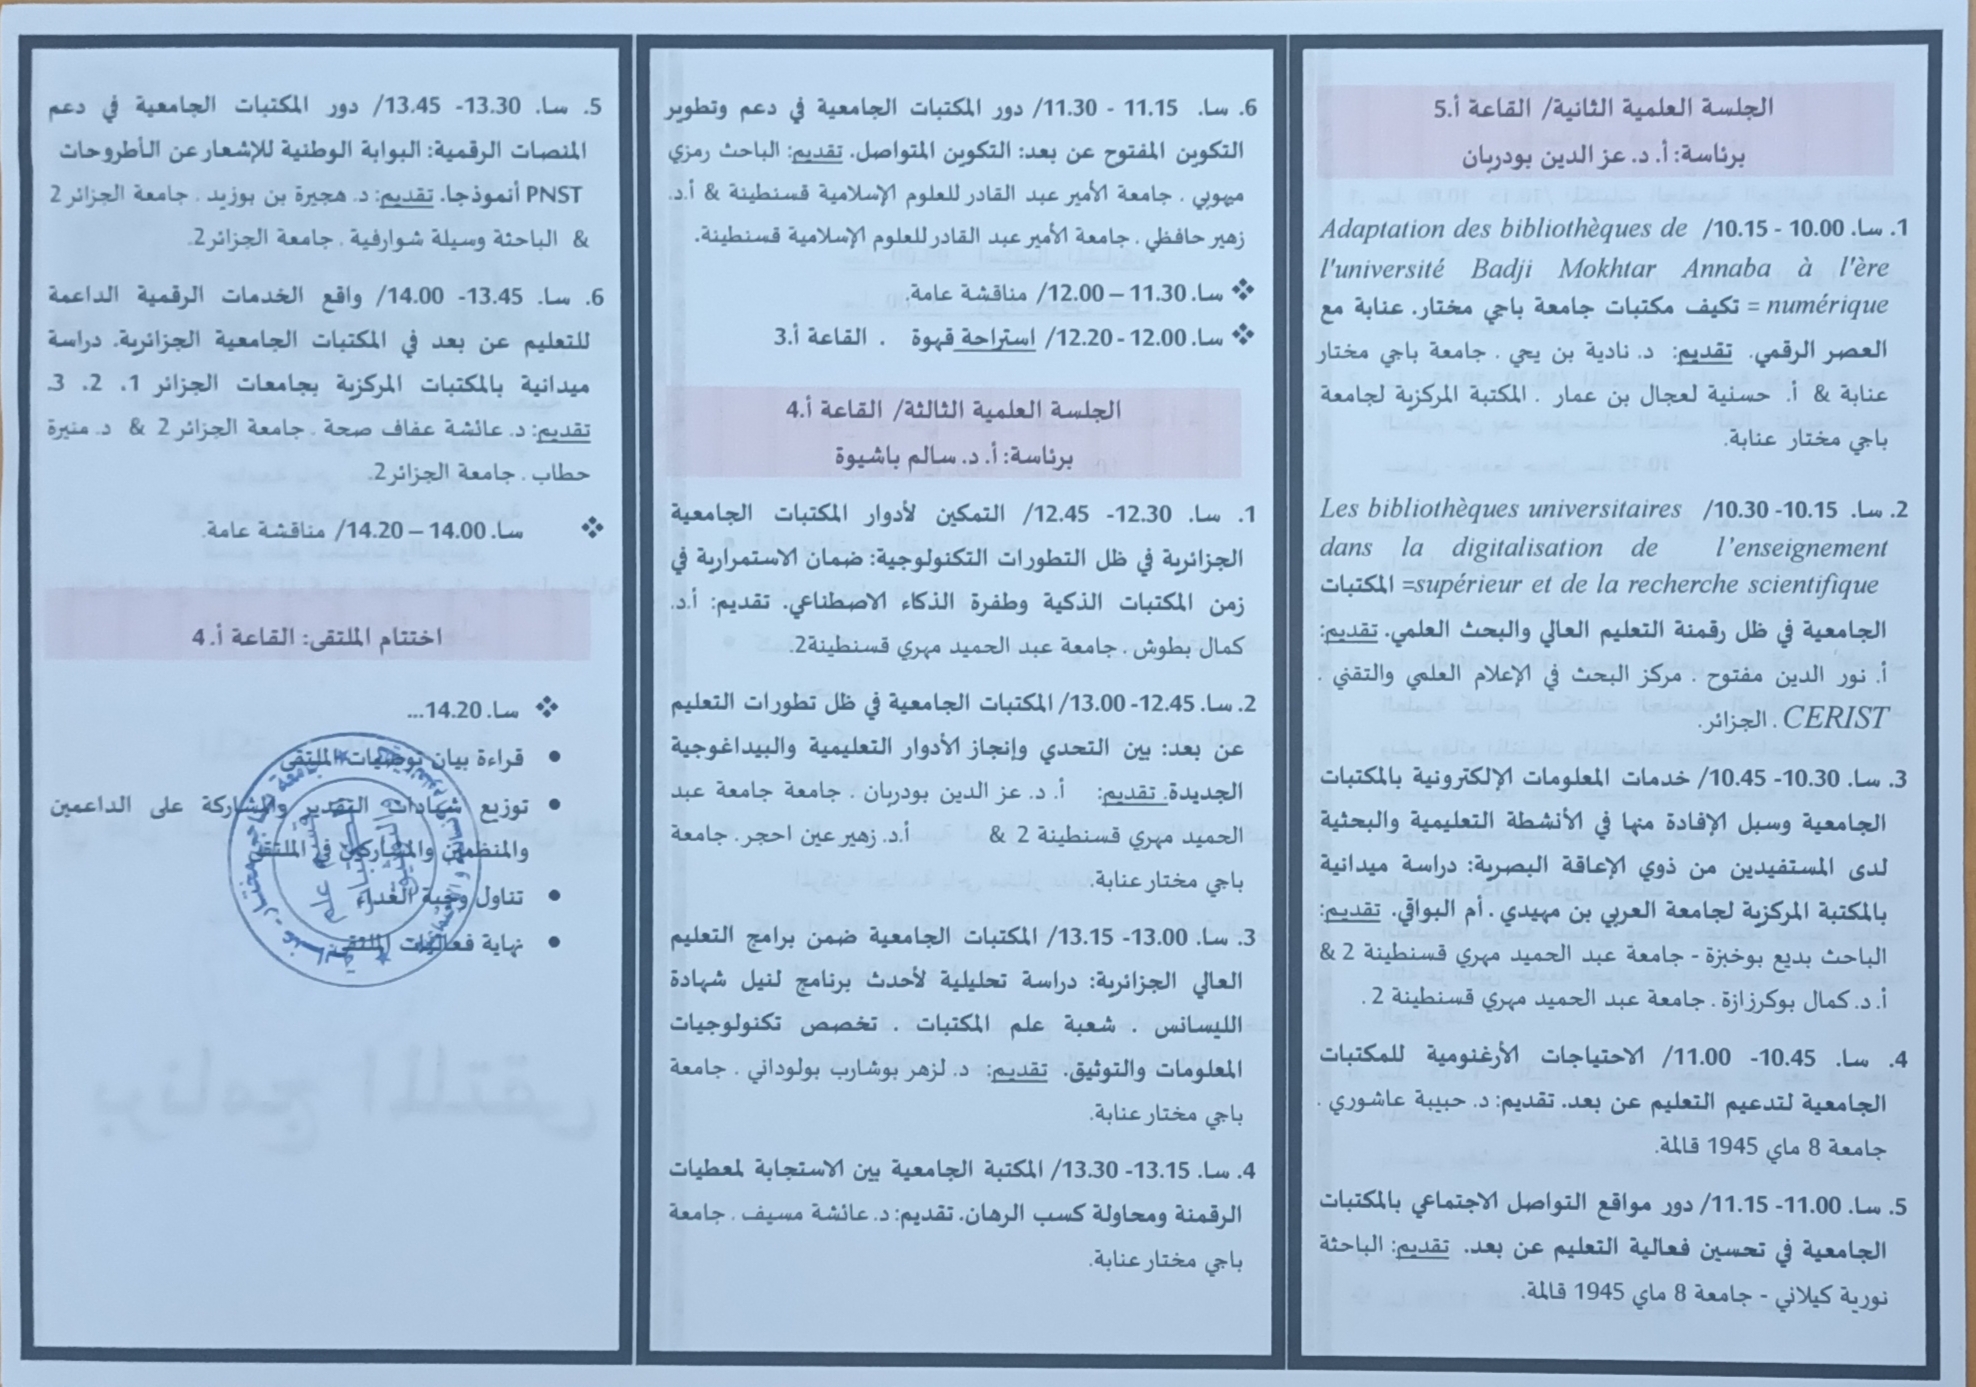 الجلسة العلمية الثانية/ القاعة أ.5
برئاسة: أ. د. عز الدين بودربان
1. سا. 10.00 - 10.15/ Adaptation des bibliothèques de
l'université Badji Mokhtar Annaba à l'ère
numérique = تكيف مكتبات جامعة باجي مختار. عنابة مع
العصر الرقمي. تقديم: د. نادية بن يحي . جامعة باجي مختار
عنابة & أ. حسنية لعجال بن عمار . المكتبة المركزية لجامعة
باجي مختار عنابة.
2. سا. 10.15- 10.30/ Les bibliothèques universitaires
dans la digitalisation de l’enseignement
supérieur et de la recherche scientifique= المكتبات
الجامعية في ظل رقمنة التعليم العالي والبحث العلمي. تقديم:
أ. نور الدين مفتوح . مركز البحث في الإعلام العلمي والتقني .
CERIST . الجزائر.
3. سا. 10.30- 10.45/ خدمات المعلومات الإلكترونية بالمكتبات
الجامعية وسبل الإفادة منها في الأنشطة التعليمية والبحثية
لدى المستفيدين من ذوي الإعاقة البصرية: دراسة ميدانية
بالمكتبة المركزية لجامعة العربي بن مهيدي . أم البواقي. تقديم:
الباحث بديع بوخبزة - جامعة عبد الحميد مهري قسنطينة 2 &
أ. د. كمال بوكرزازة . جامعة عبد الحميد مهري قسنطينة 2 .
4. سا. 10.45- 11.00/ الاحتياجات الأرغنومية للمكتبات
الجامعية لتدعيم التعليم عن بعد. تقديم: د. حبيبة عاشوري .
جامعة 8 ماي 1945 قالمة.
5. سا. 11.00- 11.15/ دور مواقع التواصل الاجتماعي بالمكتبات
الجامعية في تحسين فعالية التعليم عن بعد. تقديم: الباحثة
نورية كيلاني - جامعة 8 ماي 1945 قالمة.
6. سا. 11.15 - 11.30/ دور المكتبات الجامعية في دعم وتطوير
التكوين المفتوح عن بعد: التكوين المتواصل. تقديم: الباحث رمزي
ميهوبي . جامعة الأمير عبد القادر للعلوم الإسلامية قسنطينة & أ.د.
زهير حافظي . جامعة الأمير عبد القادر للعلوم الإسلامية قسنطينة.
❖ سا. 11.30 – 12.00/ مناقشة عامة.
❖ سا. 12.00 - 12.20/ استراحة قهوة . القاعة أ.3
الجلسة العلمية الثالثة/ القاعة أ.4
برئاسة: أ. د. سالم باشيوة
1. سا. 12.30- 12.45/ التمكين لأدوار المكتبات الجامعية
الجزائرية في ظل التطورات التكنولوجية: ضمان الاستمرارية في
زمن المكتبات الذكية وطفرة الذكاء الاصطناعي. تقديم: أ.د.
كمال بطوش . جامعة عبد الحميد مهري قسنطينة2.
2. سا. 12.45- 13.00/ المكتبات الجامعية في ظل تطورات التعليم
عن بعد: بين التحدي وإنجاز الأدوار التعليمية والبيداغوجية
الجديدة. تقديم: أ. د. عز الدين بودربان . جامعة جامعة عبد
الحميد مهري قسنطينة 2 & أ.د. زهير عين احجر. جامعة
باجي مختار عنابة.
3. سا. 13.00- 13.15/ المكتبات الجامعية ضمن برامج التعليم
العالي الجزائرية: دراسة تحليلية لأحدث برنامج لنيل شهادة
الليسانس . شعبة علم المكتبات . تخصص تكنولوجيات
المعلومات والتوثيق. تقديم: د. لزهر بوشارب بولوداني . جامعة
باجي مختار عنابة.
4. سا. 13.15- 13.30/ المكتبة الجامعية بين الاستجابة لمعطيات
الرقمنة ومحاولة كسب الرهان. تقديم: د. عائشة مسيف . جامعة
باجي مختار عنابة.
5. سا. 13.30- 13.45/ دور المكتبات الجامعية في دعم
المنصات الرقمية: البوابة الوطنية للإشعار عن الأطروحات
PNST أنموذجا. تقديم: د. هجيرة بن بوزيد . جامعة الجزائر 2
& الباحثة وسيلة شوارفية . جامعة الجزائر2.
6. سا. 13.45- 14.00/ واقع الخدمات الرقمية الداعمة
للتعليم عن بعد في المكتبات الجامعية الجزائرية. دراسة
ميدانية بالمكتبات المركزية بجامعات الجزائر 1. 2. 3.
تقديم: د. عائشة عفاف صحة . جامعة الجزائر 2 & د. منيرة
حطاب . جامعة الجزائر2.
❖ سا. 14.00 – 14.20/ مناقشة عامة.
اختتام الملتقى: القاعة أ. 4
❖ سا. 14.20...
• قراءة بيان توصيات الملتقى
• توزيع شهادات التقدير والمشاركة على الداعمين
والمنظمين والمشاركين في الملتقى
• تناول وجبة الغداء
• نهاية فعاليات الملتقى
قسم علم
المكتبات
والتوثيق
برنامج الملتقى